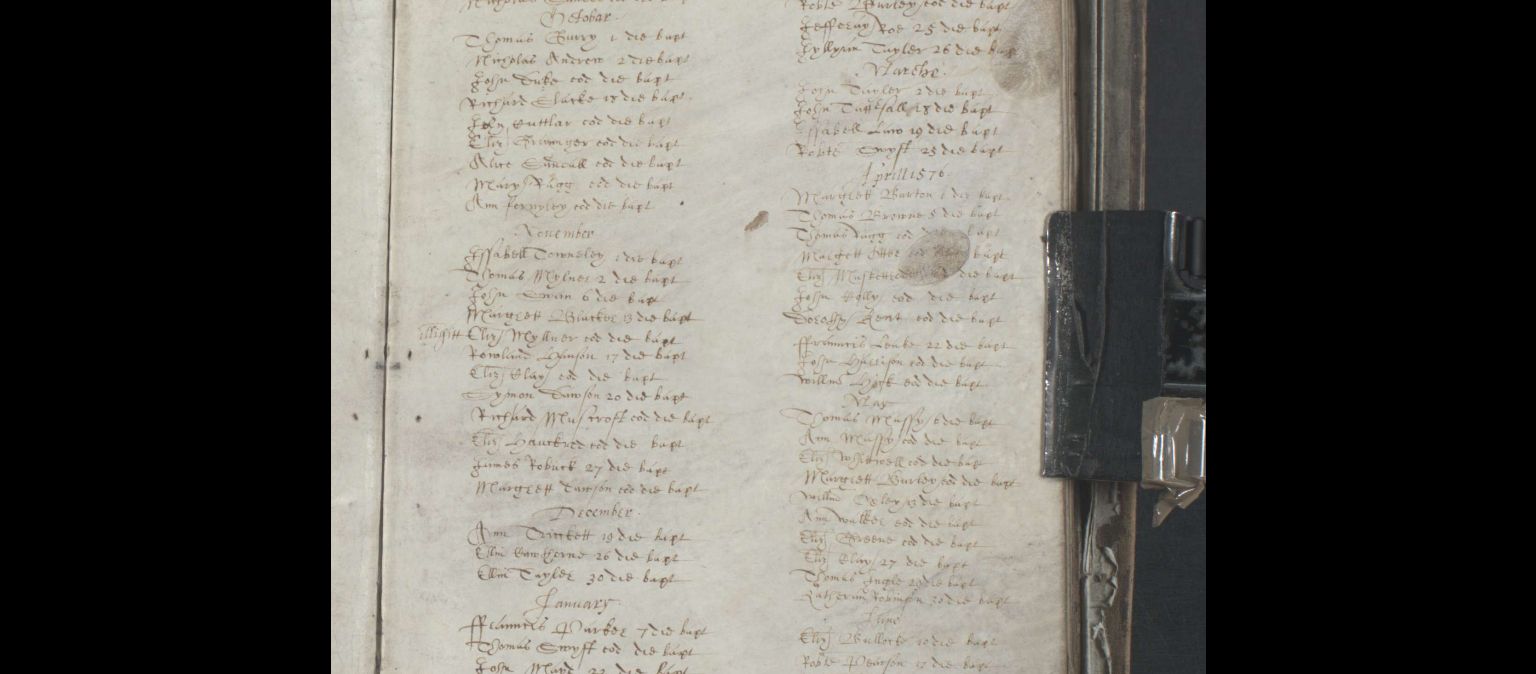 October
Thomas Burry 1 die bapt
Nicholas Andrew 2 die bapt
John Duke eod die bapt
Richard Clarke 18 die bapt
John Cuttlar eod die bapt
Eliz Grainger eod die bapt
Alice eod die bapt
Mary Ragg eod die bapt
Ann Fernyley eod die bapt
November
Issabell Towneley 1 die bapt
Thomas Mylner 2 die bapt
John Swan 6 die bapt
Margrett Blacker 13 die bapt
illigitt Eliz Myllner eod die bapt
Rowland Hanson 17 die bapt
Eliz Clay eod die bapt
Symon Dawson 20 die bapt
Richard Muscroft eod die bapt
Eliz eod die bapt
James Robuck 27 die bapt
Margrett Dawson eod die bapt
December
Ann Trickett 19 die bapt
Ellin Hawthorne 26 die bapt
Ellin Tayler 30 die bapt
January
ffrauncis Parker 7 die bapt
Thomas Swyft eod die bapt
John Ward 22 die bapt
Robte Burley eod die bapt
Jefferay Roe 25 die bapt
Tayler 26 die bapt
Marche
John Tayler 2 die bapt
John Tattsall 18 die bapt
Issabell Law 19 die bapt
Robte Swyft 25 die bapt
Aprill 1576
Margrett Burton 1 die bapt
Thomas Browne 5 die bapt
Thomas Ragg eod die bapt
Margett eod die bapt
Eliz die bapt
John Holly eod die bapt
Dorothy Kent eod die bapt
ffrauncis Leake 22 die bapt
John Harrison eod die bapt
Willm eod die bapt
May
Thomas Massy 6 die bapt
Ann Massy eod die bapt
Eliz Whitwell eod die bapt
Margrett Burley eod die bapt
Willm Oxley 13 die bapt
Ann Walker eod die bapt
Eliz Greene eod die bapt
Eliz Clay 27 die bapt
Thomas Ingle 29 die bapt
Katherin Robinson 30 die bapt
June
Eliz Bullocke 10 die bapt
Robte Pearson 17 die bapt